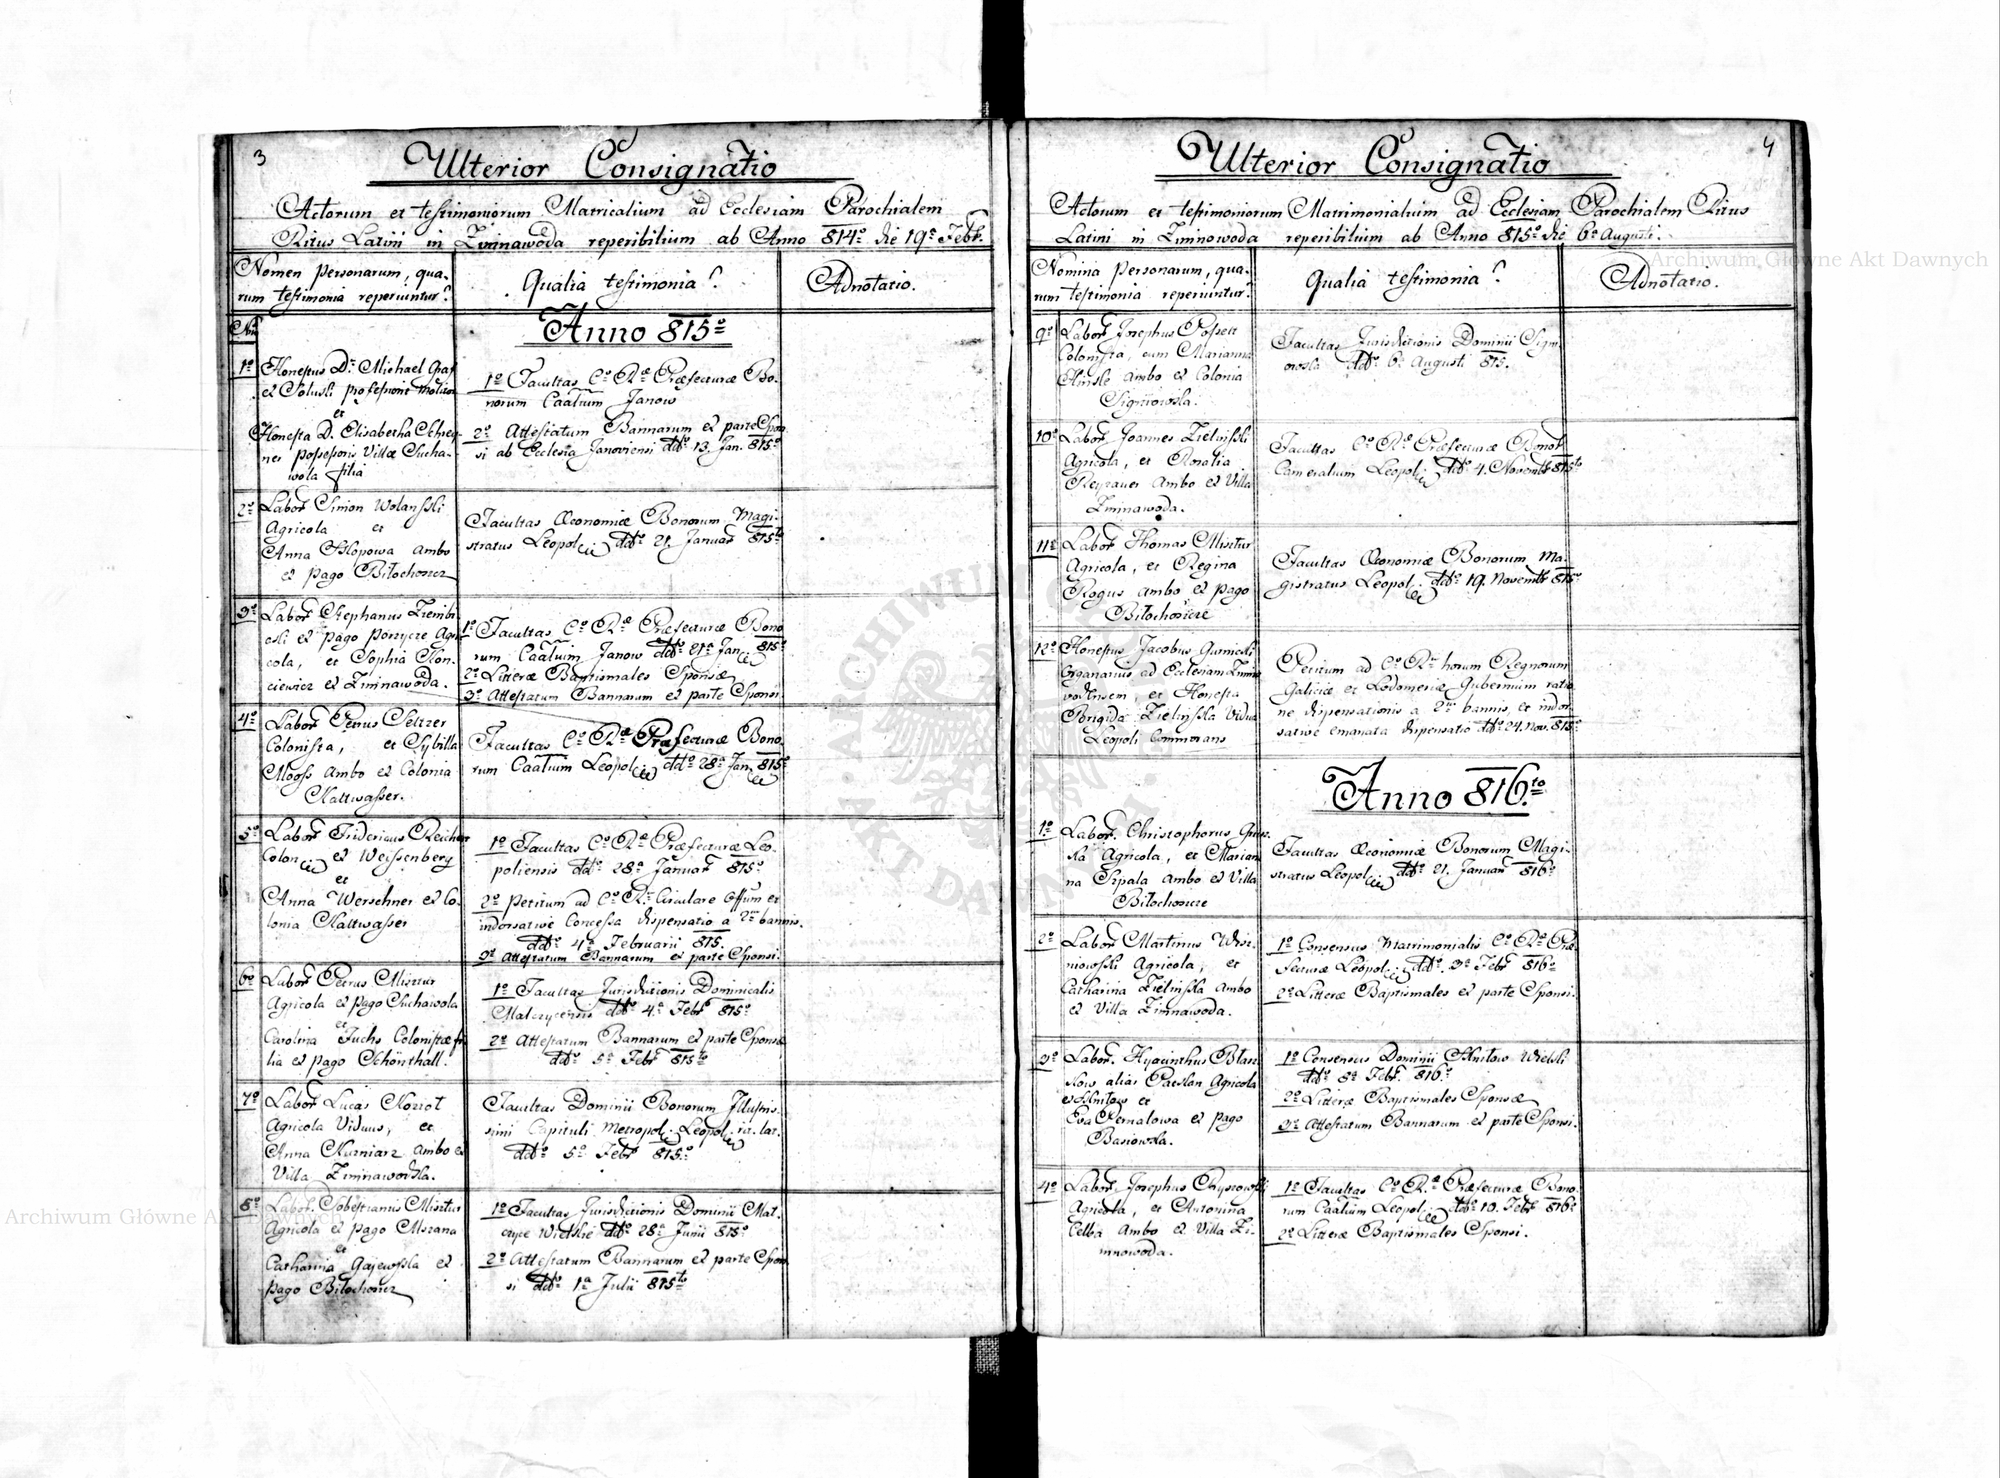 3
Ulterior Consignatio
Actorum et testimoniorum Matricalium ad Ecclesiam Parochialem
Ritus Latini in Zimnawoda reperibilium ab Anno 814º die 19ª Febr.
Nomen personarum, qua-
rum testimonia reperiuntur?
Qualia testimonia?
Adnotatio.
Nrus
Anno 815º
1º Honestus D. Michael Graf
ex Solusli professione molitor
et
Honesta D. Elisabetha Schreg-
ner possessoris Villæ Sucha-
wola filia
1º Facultas C. R. Præfecturæ Bo-
norum Caalium Janow
2º Attestatum Bannarum ex parte Spon
si ab Ecclesia Janoviensi ddto 13. Jan. 815º
2º Labor. Simon Wolanski
Agricola et
Anna Hlopowa ambo
ex pago Bilochoncz
Facultas Œconomiæ Bonorum Magi-
stratus Leopol. ddto 21. Januar 815to
3º Labor. Stephanus Ziembi
cki ex pago Porzycze Agri
cola, et Sophia Hon-
ciewicz ex Zimnawoda.
1º Facultas C. R. Præfecturæ Bono
rum Caalium Janow ddto 21ª Jan. 815º
2º Litteræ Baptismales Sponsæ
3º Attestatum Bannarum ex parte Sponsi.
4º Labor. Petrus Seltzer
Colonista, et Sybilla
Mooss ambo ex Colonia
Kaltwasser.
Facultas C. R. Præfecturæ Bono-
rum Caalium Leopol. ddto 28ª Jan. 815º
5º Labor. Fridericus Reicher
Colon. ex Weissenberg
et
Anna Werschner ex Co-
lonia Kaltwasser
1º Facultas C. R. Præfecturæ Leo-
poliensis ddto 28ª Januar 815º
2º Petitum ad C. R. Circulare Offum et
indorsative Concessa dispensatio a 2bus bannis.
ddto 4ª Februarii 815.
3º Attestatum Bannarum ex parte Sponsi.
6º Labor. Petrus Misztur
Agricola ex pago Suchawola
et
Carolina Fuchs Colonistæ fi
lia ex pago Schönthall.
1º Facultas Jurisdictionis Dominicalis
Malczycensis ddto 4ª Febr. 815º
2º Attestatum Bannarum ex parte Sponsæ
ddto 5ª Febr. 815to
7º Labor. Lucas Nozrot
Agricola Viduus, et
Anna Kuzniarz ambo ex
Villa Zimnawodzka.
Facultas Dominii Bonorum Illustris-
simi Capituli Metropol. Leopol. rit. lat.
ddto 5ª Febr. 815º
8º Labor. Sobestianus Misztur
Agricola ex pago Mszana
et
Catharina Gajewska ex
pago Bilochoncz
1º Facultas Jurisdictionis Dominii Mal-
czyce Wielkie ddto 28ª Junii 815º
2º Attestatum Bannarum ex parte Spon-
si ddto 1ª Julii 815to
4
Ulterior Consignatio
Actorum et testimoniorum Matrimonialium ad Ecclesiam Parochialem Ritus
Latini in Zimnowoda reperibilium ab Anno 815º die 6ª Augusti.
Nomina personarum, qua-
rum testimonia reperiuntur?
Qualia testimonia?
Adnotatio.
9º Labor. Josephus Possert
Colonista, cum Marianna
Hinsle ambo ex Colonia
Sigmiowska.
Facultas Jurisdictionis Dominii Sigm
owska ddto 6ª Augusti 815.
10º Labor. Joannes Zielinski
Agricola, et Rosalia
Reyzauer ambo ex Villa
Zimnawoda.
Facultas C. R. Præfecturæ Bonor.
Cameralium Leopol. ddto 4. Novembr 815to
11º Labor. Thomas Misztur
Agricola, et Regina
Rogus ambo ex pago
Bilochoncze
Facultas Œconomiæ Bonorum Ma-
gistratus Leopol. ddto 19. Novembr 815º
12º Honestus Jacobus Gurnicki
Organarius ad Ecclesiam Zimna
vodensem, et Honesta
Brigida Zielinska Vidua
Leopoli Commorans
Petitum ad C. R. horum Regnorum
Galiciæ et Lodomeriæ Gubernium ratio
ne dispensationis a 2bus bannis, et indor-
sative emanata dispensatio ddto 24. Nov. 815º
Anno 816.to
1º Labor. Christophorus
Agricola, et Marian
na Szpala ambo ex Villa
Bilochoncze
Facultas Œconomiæ Bonorum Magi-
stratus Leopol. ddto 21. Januar 816º
2º Labor. Martinus Wisz-
niowski Agricola, et
Catharina Zielinska ambo
ex Villa Zimnawoda.
1º Consensus Matrimonialis C. R. Præ-
fecturæ Leopol. ddto 3ª Febr. 816º
2º Litteræ Baptismales ex parte Sponsi.
3º Labor. Hyacinthus Blasz
kow alias Paeslan Agricola
ex Hnitow et
Eva Pernalowa ex pago
Basiowka.
1º Consensus Dominii Hnitow Wielki
ddto 8ª Febr. 816º
2º Litteræ Baptismales Sponsæ
3º Attestatum Bannarum ex parte Sponsi.
4º Labor. Josephus Chyzrowski
Agricola, et Antonina
Celba ambo ex Villa Zi-
mnowoda.
1º Facultas C. R. Præfecturæ Bono-
rum Caalium Leopol. ddto 10. Febr. 816º
2º Litteræ Baptismales Sponsi.
Archiwum Główne Akt Dawnych
Archiwum Główne Akt Dawnych
ARCHIWUM GŁÓWNE AKT DAWNYCH